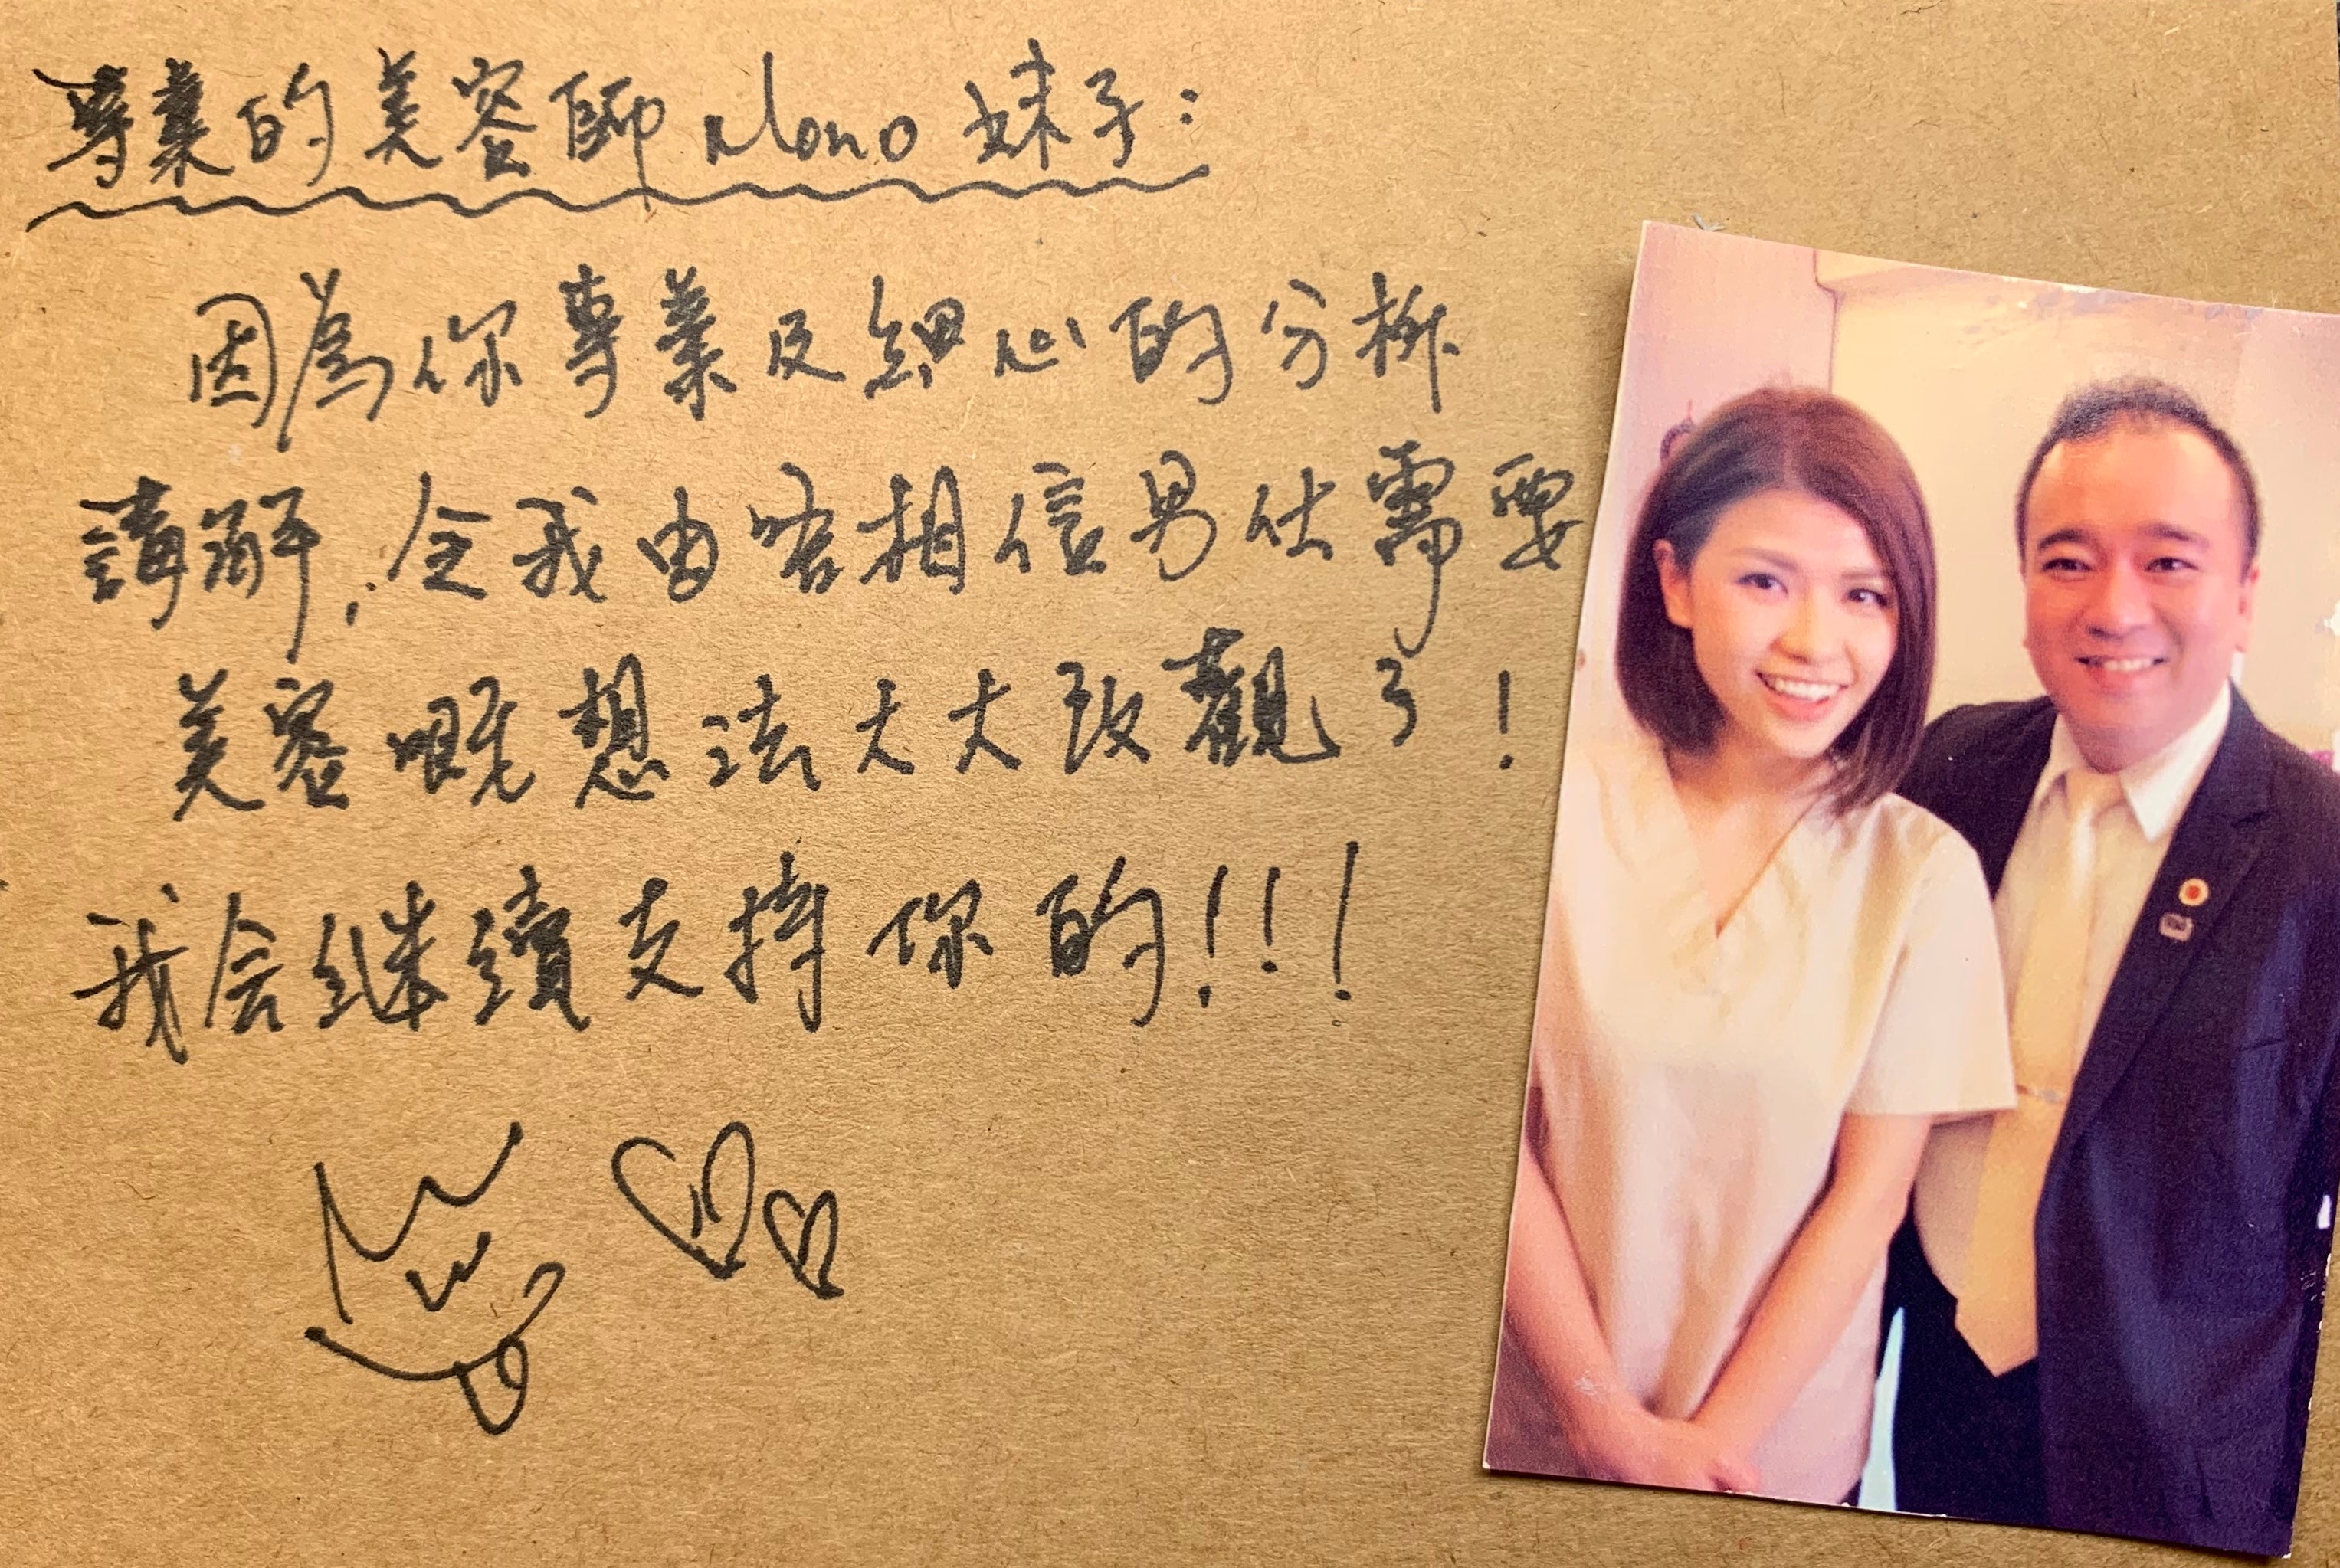 專業的美容師 Mono 妹子：
因為你專業及細心的分析
講解，令我由唔相信男仕需要
美容嘅想法大大改觀了！
我会継續支持你的!!!